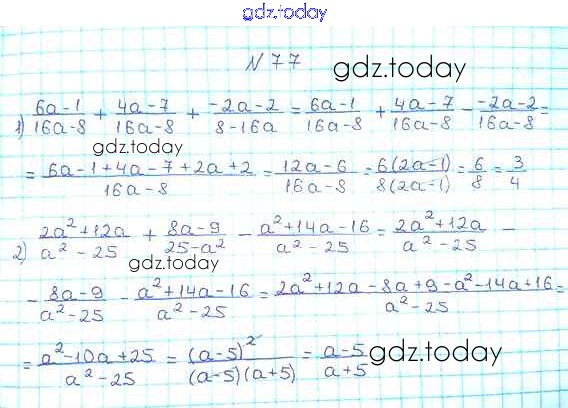 gdz.today
N 77 gdz.today
1) (6a-1)/(16a-8) + (4a-7)/(16a-8) + (-2a-2)/(8-16a) = (6a-1)/(16a-8) + (4a-7)/(16a-8) - (-2a-2)/(16a-8) =
gdz.today
= (6a-1+4a-7+2a+2)/(16a-8) = (12a-6)/(16a-8) = 6(2a-1)/8(2a-1) = 6/8 = 3/4
2) (2a²+12a)/(a²-25) + (8a-9)/(25-a²) - (a²+14a-16)/(a²-25) = (2a²+12a)/(a²-25) -
gdz.today
- (8a-9)/(a²-25) - (a²+14a-16)/(a²-25) = (2a²+12a-8a+9-a²-14a+16)/(a²-25) =
= (a²-10a+25)/(a²-25) = (a-5)²/(a-5)(a+5) = (a-5)/(a+5) gdz.today